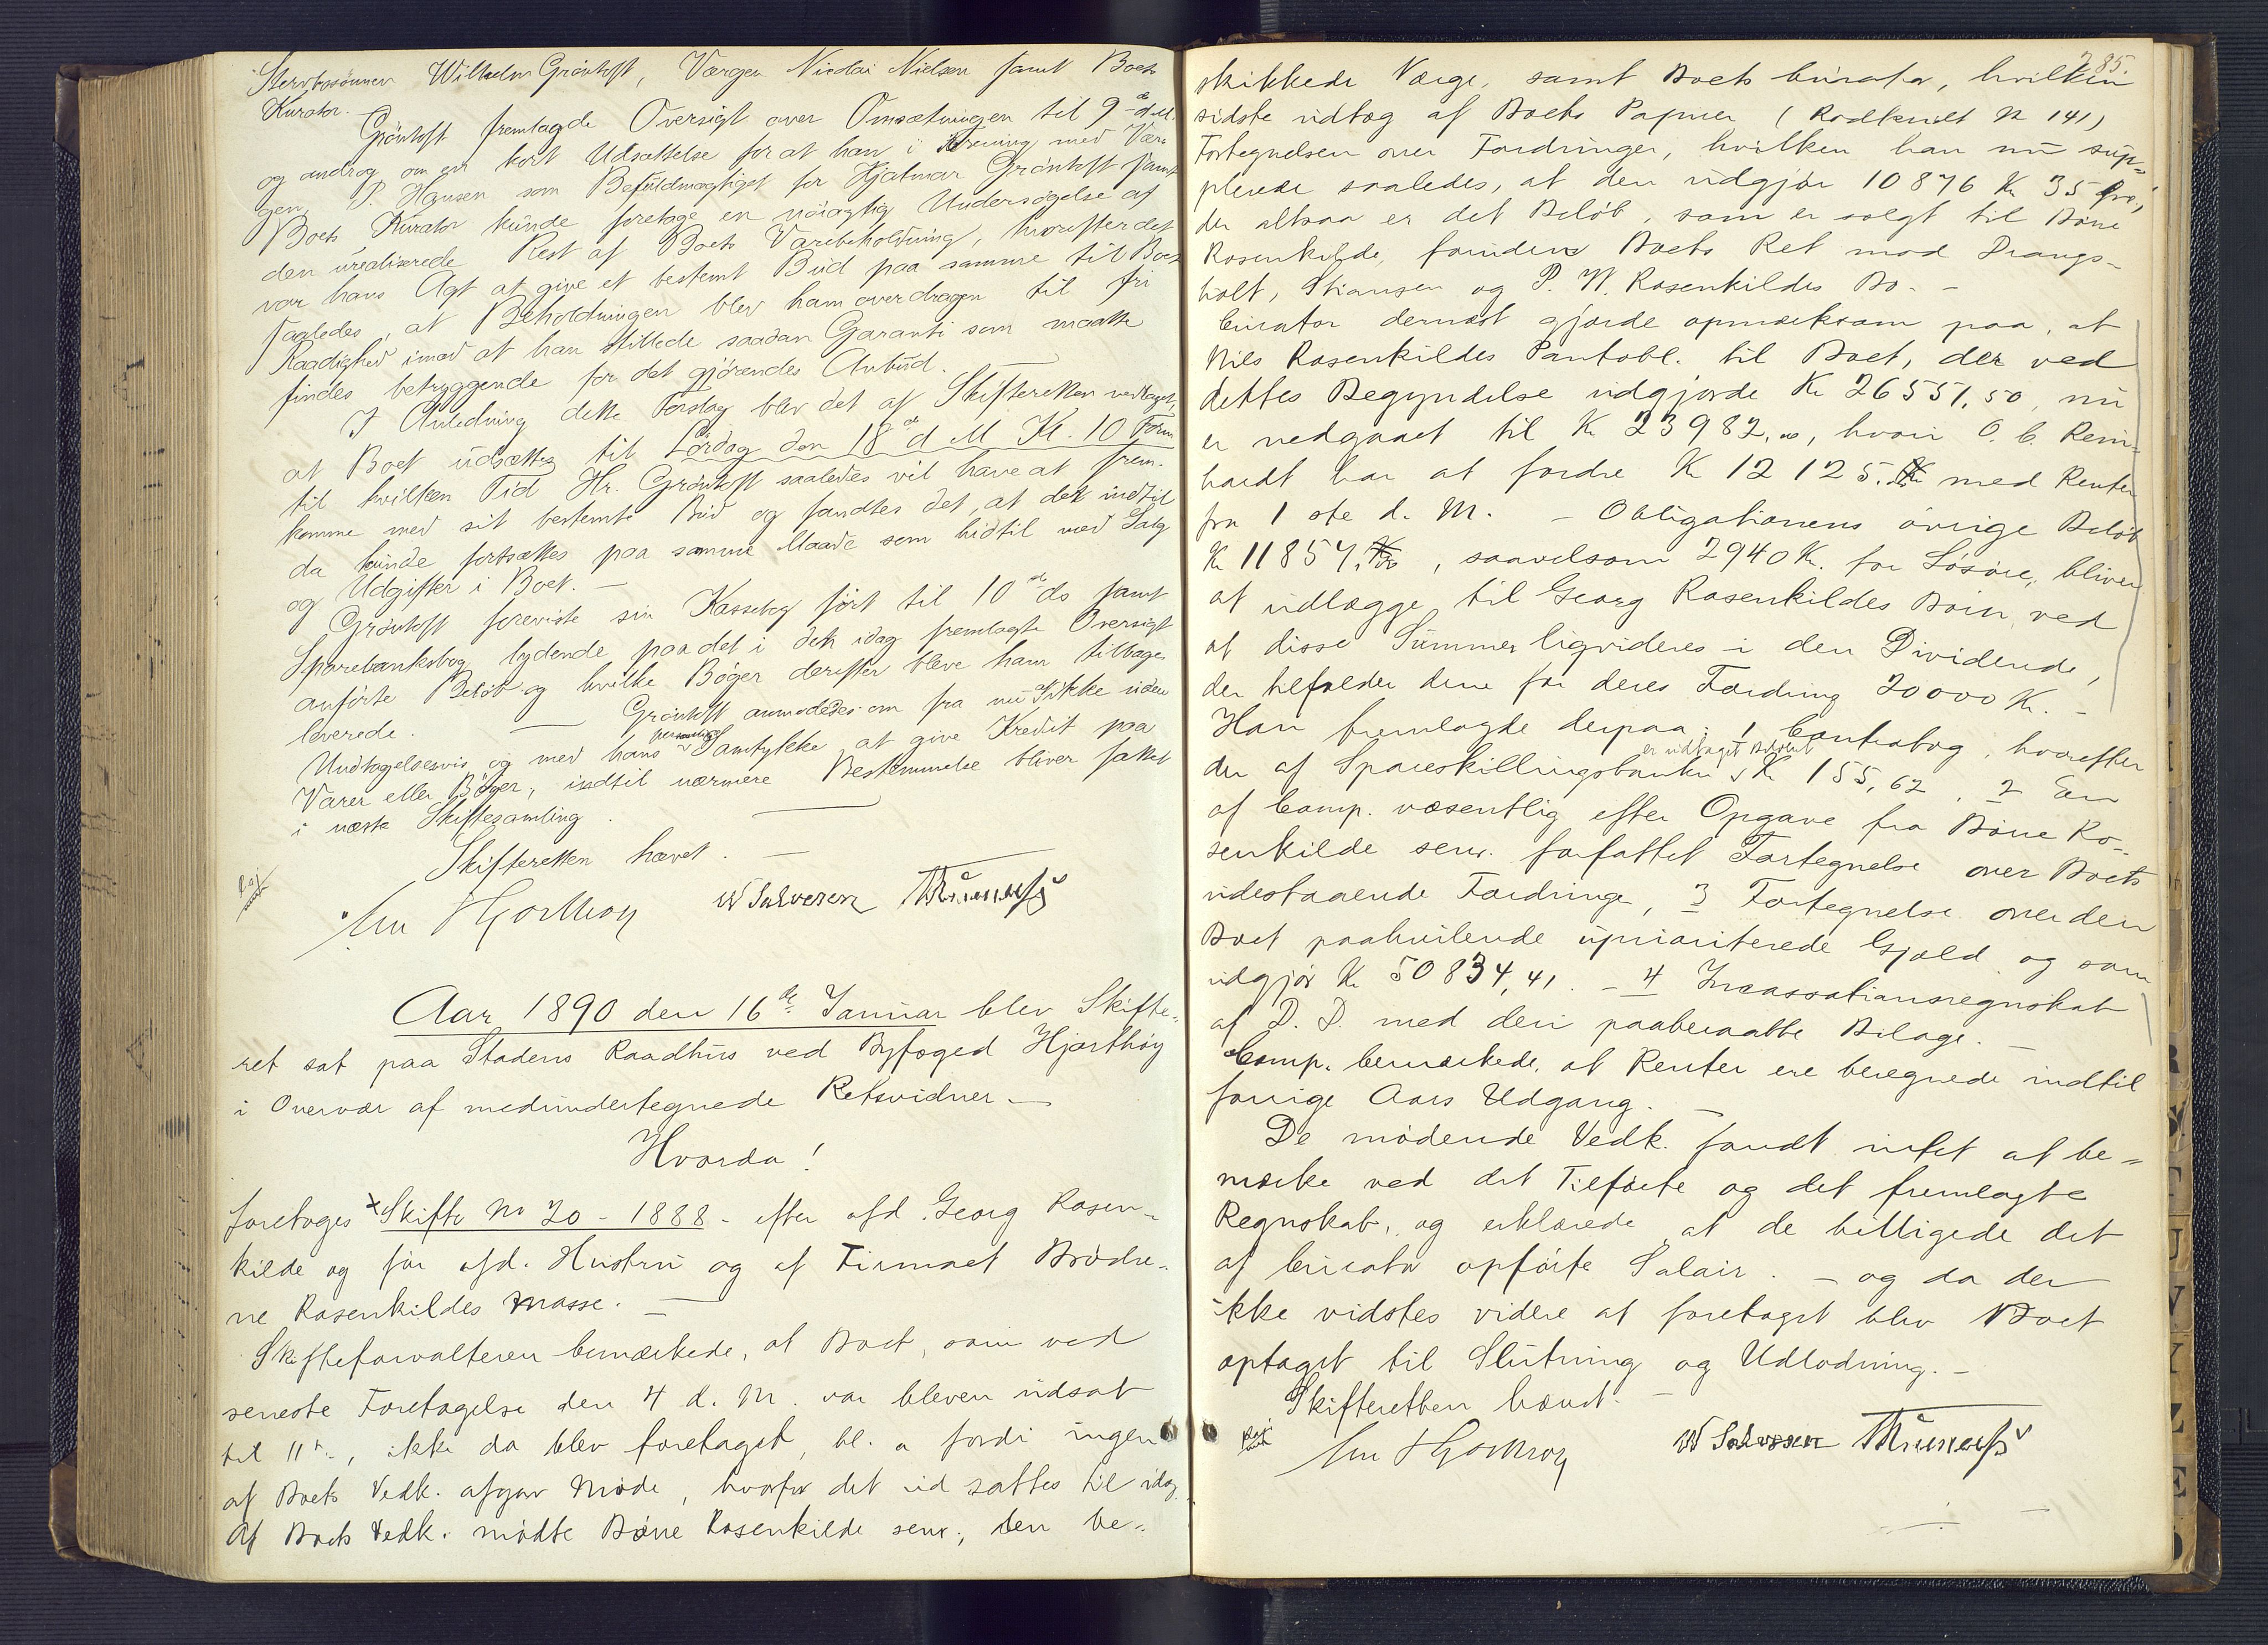 Stervbosønnen Wilhelm Grøntoft, Værgen Nicolai Nielsen samt Boets
Kurator.
Grøntoft fremlagde Oversigt over Omsætningen til 9de d.M.
og androg om en kort Udsættelse for at han i Forening med Vær-
gen, P. Hansen som Befuldmægtiget for Hjalmar Grøntoft samt
Boets Kurator kunde foretage en nøiagtig Undersøgelse af
den urealiserede Rest af Boets Varebeholdning, hvorefter det
var hans Agt at give et bestemt Bud paa samme til Boet
saaledes, at Beholdningen blev ham overdragen til fri
Raadighed imod at han stillede saadan Garanti som maatte
findes betryggende for det gjørendes Anbud. —
I Anledning dette Forslag blev det af Skifteretten vedtaget,
at Boet udsættes til Lørdag den 18de d M Kl. 10 Form
til hvilken Tid Hr. Grøntoft saaledes vil have at frem-
komme med sit bestemte Bud og fandtes det, at det indtil
da kunde fortsættes paa samme Maade som hidtil med Salg
og Udgifter i Boet. —
Grøntoft foreviste sin Kassebog ført til 10de ds samt
Sparebanksbog lydende paa det i den idag fremlagte Oversigt
anførte Beløb og hvilke Bøger derefter bleve ham tilbage
leverede. — Grøntoft anmodedes om fra nu af ikke uden
Undtagelsesvis og med hans personlige Samtykke at give Kredit paa
Varer eller Bøger, indtil nærmere Bestemmelse bliver fattet
i næste Skiftesamling. —
Skifteretten hævet. —
Hjorthøy W Salvesen
Aar 1890 den 16de Januar blev Skifte-
ret sat paa Stadens Raadhus ved Byfoged Hjorthøy
i Overvær af medundertegnede Retsvidner —
Hvorda!
foretoges Skifte No 20 - 1888 - efter afd. Georg Rosen-
kilde og før afd. Hustru og af Firmaet Brødre-
ne Rosenkildes Masse. —
Skifteforvalteren bemærkede, at Boet, som ved
seneste Foretagelse den 4 d. M. var bleven udsat
til 11te, ikke da blev foretaget, bl. a fordi ingen
af Boets Vedk. afgav Møde, hvorfor det udsattes til idag
Af Boets Vedk. mødte Børre Rosenkilde senr., den be-
285.
skikkede Værge, samt Boets Curator, hvilken
sidste udtog af Boets Papirer (Rødkridt N 141)
Fortegnelsen over Fordringer, hvilken han nu sup-
plerede saaledes, at den udgjør 10876 Kr 35 Øre,
der altsaa er det Beløb, som er solgt til Børre
Rosenkilde, foruden Boets Ret mod Drangs-
holt, Stiansen og P. W. Rosenkildes Bo. —
Curator dernæst gjorde opmærksom paa, at
Nils Rosenkildes Pantobl. til Boet, der ved
dettes Begyndelse udgjorde Kr 26551,50, nu
er nedgaaet til Kr 23982,00, hvori O. C. Rein-
hardt har at fordre Kr 12125. med Renter
fra 1ste d. M. — Obligationens øvrige Beløb
Kr 11857, saavelsom 2940 Kr. for Løsøre, bliver
at udlægge til Georg Rosenkildes Børn, ved
at disse Summer ligvideres i den Dividende,
der tilfalder dem for deres Fordring 20000 Kr. —
Han fremlagde derpaa: 1 Contrabog, hvorefter
der af Spareskillingsbanken er udtaget Beløbet Kr 155,62. 2 En
af Comp. væsentlig efter Opgave fra Børre Ro-
senkilde senr. forfattet Fortegnelse over Boets
udestaaende Fordringer, 3 Fortegnelse over den
Boet paahvilende uprioriterede Gjæld og som
udgjør Kr 50834,41. — 4 Incassationsregnskab
af D. D. med deri paaberaabte Bilage. —
Comp. bemærkede, at Renter ere beregnede indtil
forrige Aars Udgang. —
De mødende Vedk. fandt intet at be-
mærke ved det Tilførte og det fremlagte
Regnskab, og erklærede at de billigede det
af Curator opførte Salair. — og da der
ikke vidstes videre at foretaget blev Boet
optaget til Slutning og Udlodning. —
Skifteretten hævet. —
Hjorthøy W Salvesen